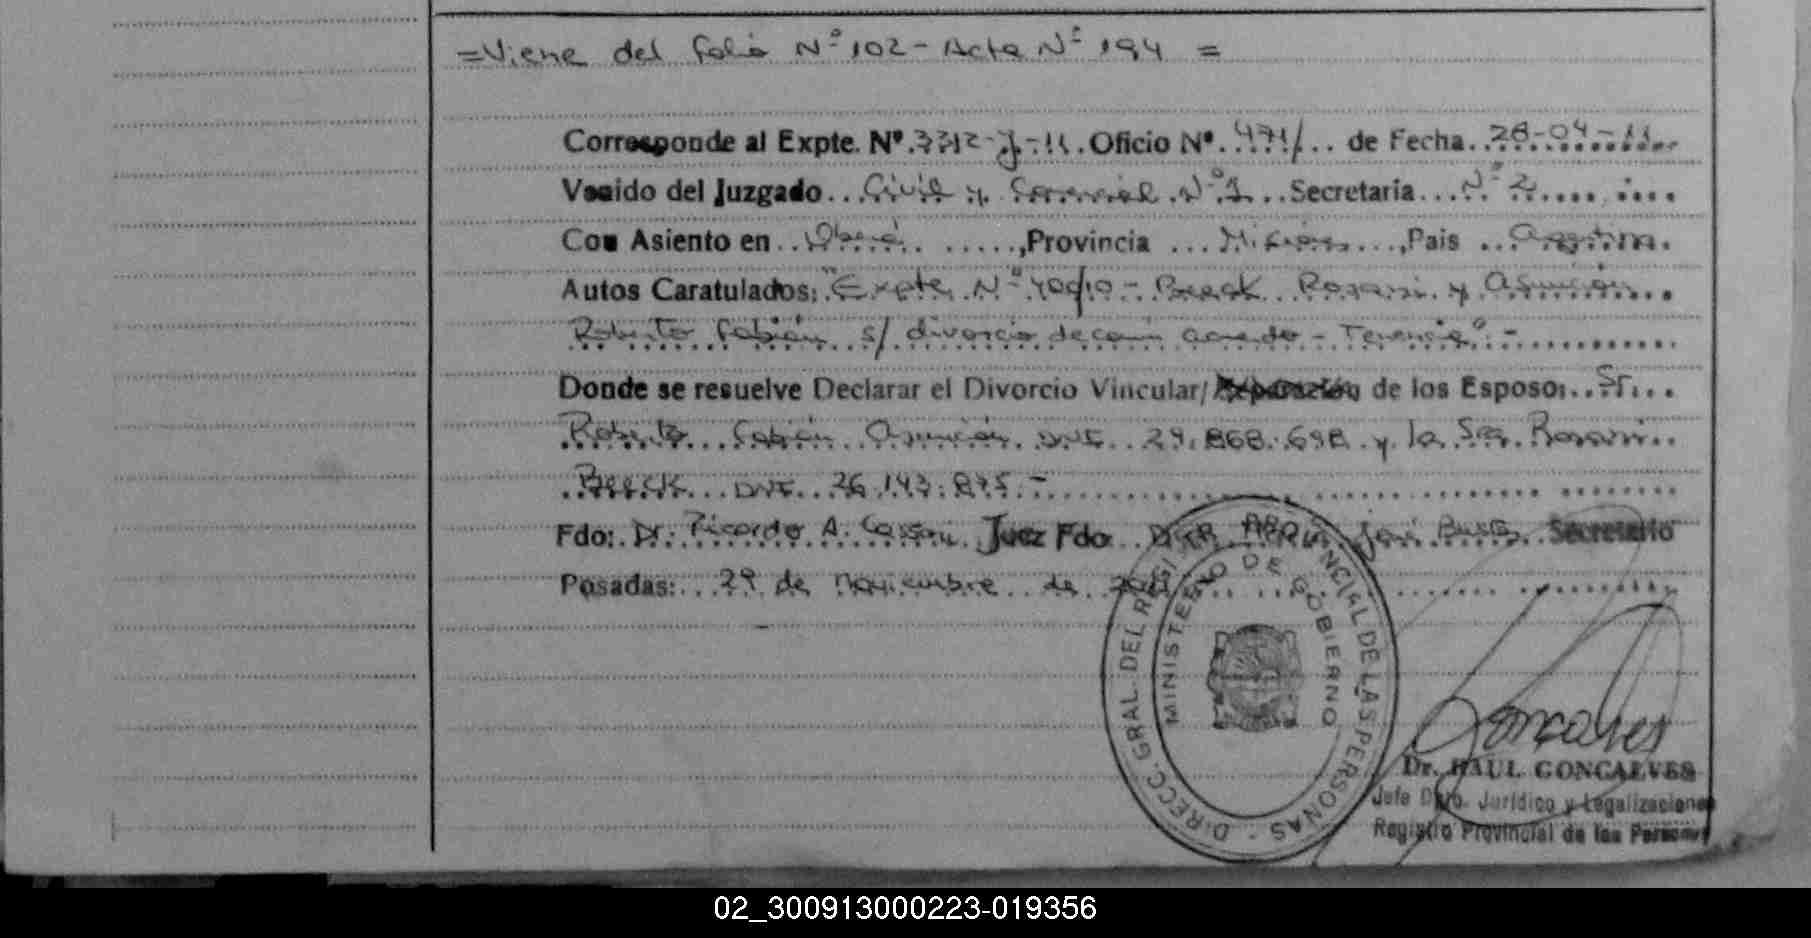 =Viene del folio Nº 102 - Acta Nº 194 =
Corresponde al Expte. Nº 3312-J-11. Oficio Nº 471/ de Fecha 28-04-11
Venido del Juzgado Civil y Comercial Nº 1 Secretaria Nº 2
Con Asiento en Oberá, Provincia Misiones, Pais Argentina.
Autos Caratulados: "Expte Nº - Rosani y Asunción
Roberto Fabián s/ divorcio de común acuerdo - Tenencia" -
Donde se resuelve Declarar el Divorcio Vincular/ de los Esposo: Sr.
Roberto Fabián Asunción DNI 24.868.698 y la Sra. Rosani
DNI 26.143.895.-
Fdo: Dr. Ricardo A. Juez Fdo José Secretario
Posadas: 29 de noviembre de
DIRECC. GRAL. DEL REGISTRO PROVINCIAL DE LAS PERSONAS -
MINISTERIO DE GOBIERNO
Goncalves
Dr. RAUL GONCALVES
Jefe Dpto. Jurídico y Legalizaciones
Registro Provincial de las Personas
02_300913000223-019356